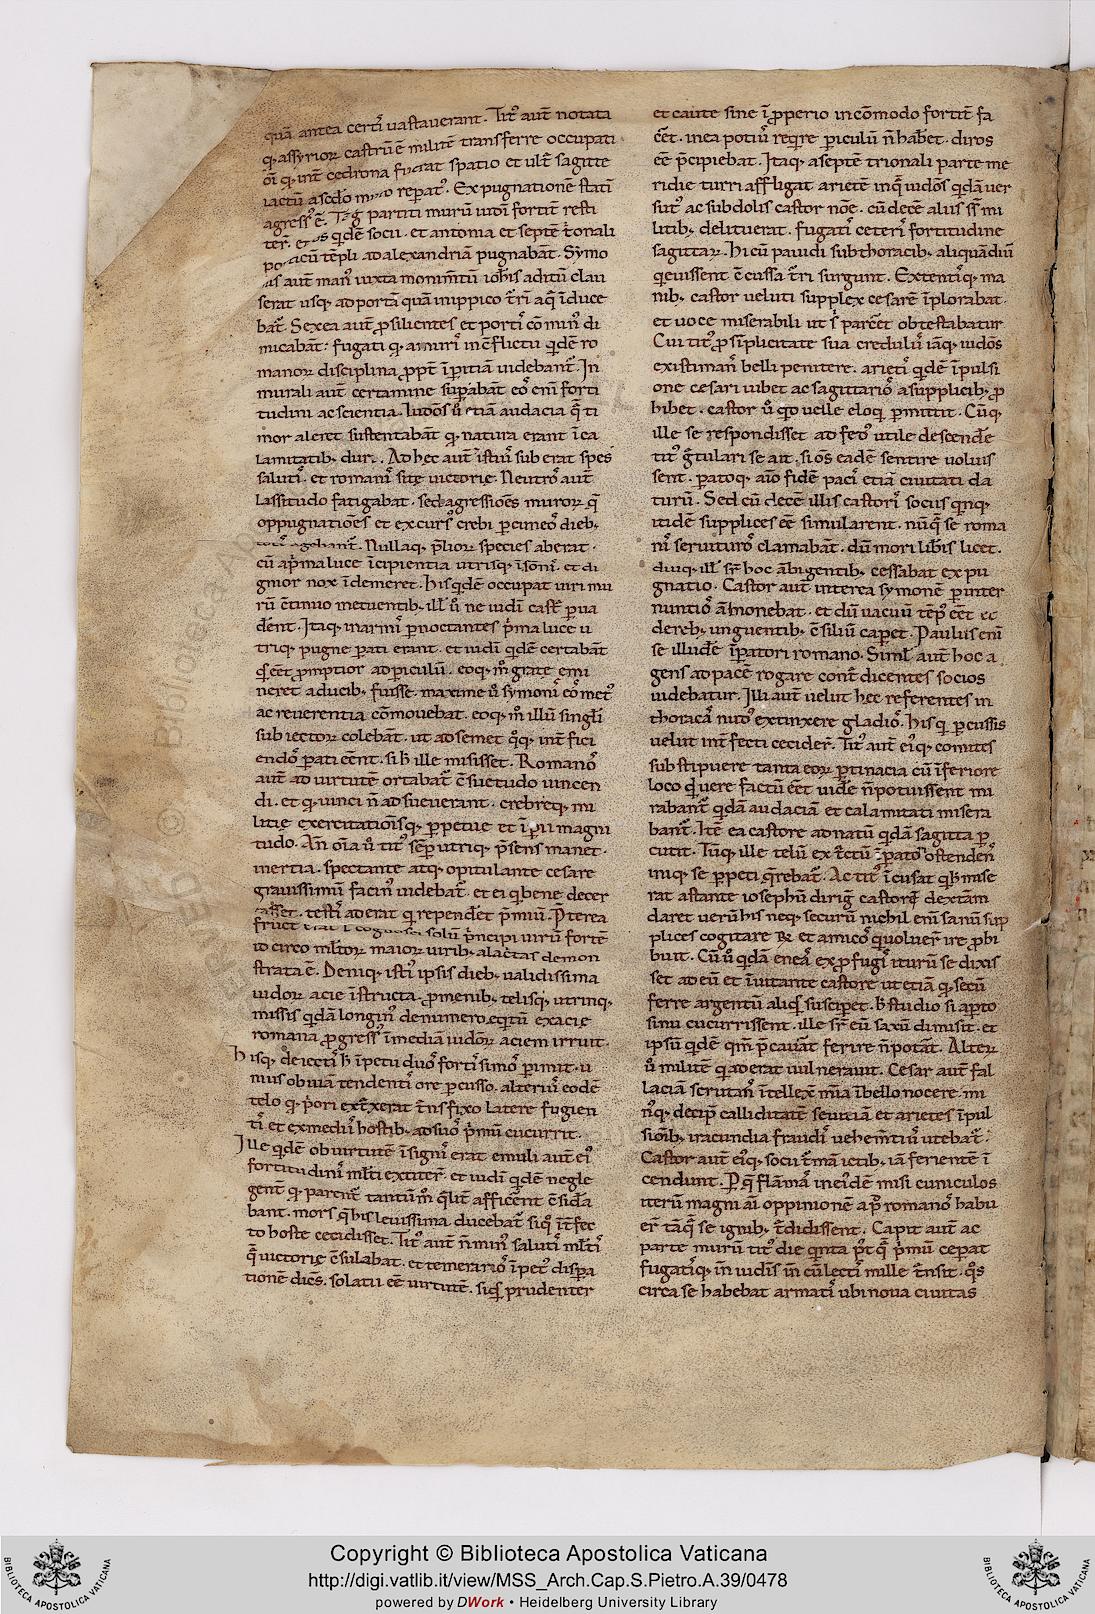 quā antea certī uastauerant. Tit᷒ aut̄ notata
q; assyrior̄ castrū ē militē transferre occupati
oī q; int̄ cedrona fu at spatio et ult̄ sagitte
iactū a sc̄do muro repat᷒. Expugnationē statī
agress᷒ ē. partiti murū iudī fortit̄ resti
ter̄. qdē socii. et antonia et septē t̄onali
ticū tēpli ad alexandriā pugnabāt. Symo
is aut̄ man᷒ iuxta monim̄tū ioh̄is aditū clau
serat usq; ad portā quā in ippico t̄rī aq̄ īduce
bat̄. Sexea aut̄ ꝓsilientes et portī cōmin᷒ di
micabant: fugati q; a murī in c̄flictu qdē ro
manor̄ disciplina ꝓpt̄ īpitiā uidebant̄. In
murali aut̄ certamine suꝑabāt eo᷒ enī forti
tudini ac scientia. Iudōs u᷒ etiā audacia q̄ ti
mor aleret sustentabāt q; natura erant ī ca
lamitatib; dur. Ad hec aut̄ istī᷒ suberat spes
salutī. et romanī sitę uictorię. Neutro᷒ aut̄
lassitudo fatigabat. sed agressiōes muror̄ q̄
oppugnatiōes et excurs᷒ crebi ꝑcuneo᷒ dieb;
agebant̄. Nullaq; p̄lior̄ species aberat.
cū ap̄ma luce īcipientia utrisq; īsonī. et di
gnior nox īdemeret. his qdē occupat uiri mu
rū c̄tinuo metuentib; ill᷒ u᷒ ne iudī castꝰ ꝑua
dent. Itaq; in armī ꝑnoctantes p̄ma luce u
triq; pugne ꝑati erant. et iudī qdē certabāt
q̄s cēt ꝓmptior ad piculū. eoq; m̄ grate emi
neret a ducib; fuisse. maxime u᷒ symonī eo᷒ met᷒
ac reuerentia cōmouebat. eoq; m̄ illū singlī
subiector̄ colebāt. ut ad semet q᷒q; int̄fici
endo᷒ ꝑati cēnt. si h̄ ille misisset. Romano᷒
aut̄ ad uirtutē ortabat̄ c̄suetudo uincen
di. et q; uinci n̄ adsueuerant. crebreq; mi
litię exercitationisq; ꝑpetuę et īpii magni
tudo. An̄ oīa u᷒ tit᷒ semp utriq; p̄sens manet.
inertia. spectante atq; opitulante cesare
grauissimū facin᷒ uidebat̄. et ei q bene decer
tasset. testī aderat q rependet p̄miū. P̄terea
solū p̄ncipi uirū fortē
id circo m̄ltor̄ maior̄ uirib; alac̄tas demon
strata ē. Deniq; istī ipsis dieb; ualidissima
iudor̄ acie īstructa ꝓmenib; telisq; utrinq;
missis qdā longin᷒ de numero eqtū ex acie
romana ꝓgress᷒ ī mediā iudor̄ aciem irruit.
hisq; deiectī h̄ īpetu duo᷒ fortissimo᷒ ꝑimit. u
nius obuiā tendentī ore ꝑcusso. alteri᷒ eodē
telo q; p̄ori ext̄xerat t̄ns fixo latere fugien
tī et exmedii᷒ hostib; ad suo᷒ p̄mū cucurrit.
Ille qdē ob uirtutē īsignī erat emuli aut̄ ei᷒
fortitudinī ml̄ti extiter̄. et iudī qdē negle
gent̄ q; parent̄ tantūm̄ q̄lit̄ afficēnt c̄sida
bant. mors q̄ his leuissima ducebat̄ siq᷒ ī t̄fec
to hoste cecidisset. Tit᷒ aut̄ n̄min᷒ salutī ml̄tī
q̄ uictorię c̄sulabat. et temerario᷒ īpet᷒ dispa
tionē dicēs. solatii eē uirtutē. siqs prudenter
et caute sine īꝓperio incōmodo fortit̄ fa
cet̄. in ea poti᷒ reqre piculū n̄ habet. diros
eē p̄cipiebat. Itaq; a septē trionali parte me
ridie turri affligat arietē in q̄ iudo᷒ qdā uer
sut᷒ ac subdolis castor nōe. cū decē aliis s̄s mi
litib; delituerat. fugatī ceterī fortitudine
sagittar̄. Hi cū pauidi sub thoracib; aliquādiū
qeuissent c̄cussa t̄ri surgunt. Extentīq; ma
nib; castor ueluti supplex cesarē īplorabat.
et uoce miserabili ut s̄ parcet obtestabatur.
Cui tit᷒ ꝓ sīplicitate sua credul᷒ iāq; iudo᷒
existimans belli penitere. arietī qdē īpulsi
one cesari iubet ac sagittario᷒ a supplicib; ꝓ
hibet. castor u᷒ qd uelle eloq ꝑmittit. Cūq;
ille se respondisset ad fed᷒ utile descendē
tit᷒ gr̄tulari se ait. si oēs eadē sentire uoluis
sent. ꝑatoq; aīo fidē pacī etiā ciuitati da
turū. Sed cū decē illis castorī sociis qnq;
itidē supplices eē simularent. nūq̄ se roma
nī seruituro᷒ clamabāt. dū mori lib̄is licet.
diuq; ill᷒ sr̄ hoc ābigentib; cessabat expu
gnatio. Castor aut̄ interea symonē ꝑ inter
nuntio᷒ āmonebat. et dū uacuū tēp᷒ cēt ce
dereb; ungentib; c̄siliū capet. Paulūs enī
se illudē īꝑatori romano. Siml̄ aut̄ hoc a
gens ad pacē rogare cont̄ dicentes socios
uidebatur. Illi aut̄ uelut hęc referentes in
thoraca᷒ nudo᷒ extinxere gladio᷒. hisq; ꝑcussis
uelut int̄fecti ceciderṫ. Tit᷒ aut̄ ei᷒q; comites
substipuere tanta eor̄ ꝑtinacia cū īferiore
loco q̄ uere factū cēt uide n̄ potuissent mi
rabant̄ qdā audaciā et calamitati misera
bant̄. Itē ea castore ad natū qdā sagitta ꝑ
cutit. Tūq; ille telū ext̄ctū īꝑato᷒ ostendens
iniq; se ꝑpeti q̄rebat̄. Ac tit᷒ īcusat q h̄ mise
rat astante iosephū dirig᷒ castorē dextām
daret uerū his neq; securū nichil enī sanū sup
plices cogitare r̄ et amico᷒ q uoluer̄ ire ꝓhi
buit. Cū u᷒ qdā enea᷒ ex ꝓfugī iturū se dixis
set ad eū et īuitante castore ut etiā q; secū
ferre argentū aliqs suscipet. h̄ studio si apto
sinu cucurrissent. ille sr̄ eū saxū dimisit. et
ipsū qdē qm̄ p̄cauāt ferire n̄ potāt. Alter̄
u᷒ militē q aderat uulnerauit. Cesar aut̄ fal
laciā scrutan᷒ ītellex m̄ia ī bello nocere. mi
n᷒q; decip̄ calliditatē seuitiā et arietes īpul
sionib; iracundia fraudī uehem̄ti᷒ utebat̄.
Castor aut̄ ei᷒q; socii t̄mā ictib; iā ferientē ī
cendunt. P q̄ flāma᷒ in ei᷒dē misi cuniculos
iterū magni aī oppinionē ap᷒ romano᷒ habu
er̄ tāq̄ se ignib; t̄didissent. Capit aut̄ ac
parte murū tit᷒ die qnta p᷒t q̄ p̄mū ceperat
fugatīq; in iudīs in cū lectī mille t̄nsit. q᷒s
circa se habebat armatī ubi noua ciuitas
Copyright © Biblioteca Apostolica Vaticana
http://digi.vatlib.it/view/MSS_Arch.Cap.S.Pietro.A.39/0478
powered by DWork • Heidelberg University Library
BIBLIOTECA APOSTOLICA VATICANA
BIBLIOTECA APOSTOLICA VATICANA